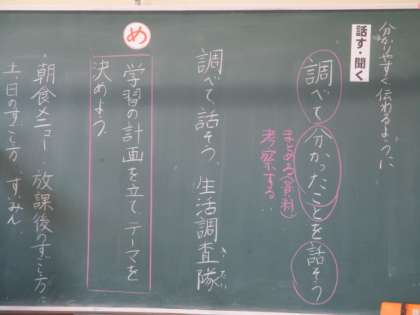 分かりやすく伝わるように
話す・聞く
調べて分かったことを話そう
まとめる(資料)
考察する
調べて話そう、生活調査隊
たい
め
学習の計画を立て、テーマを
決めよう。
・朝食メニュー・放課後のすごし方・
土、日のすごし方・すいみん